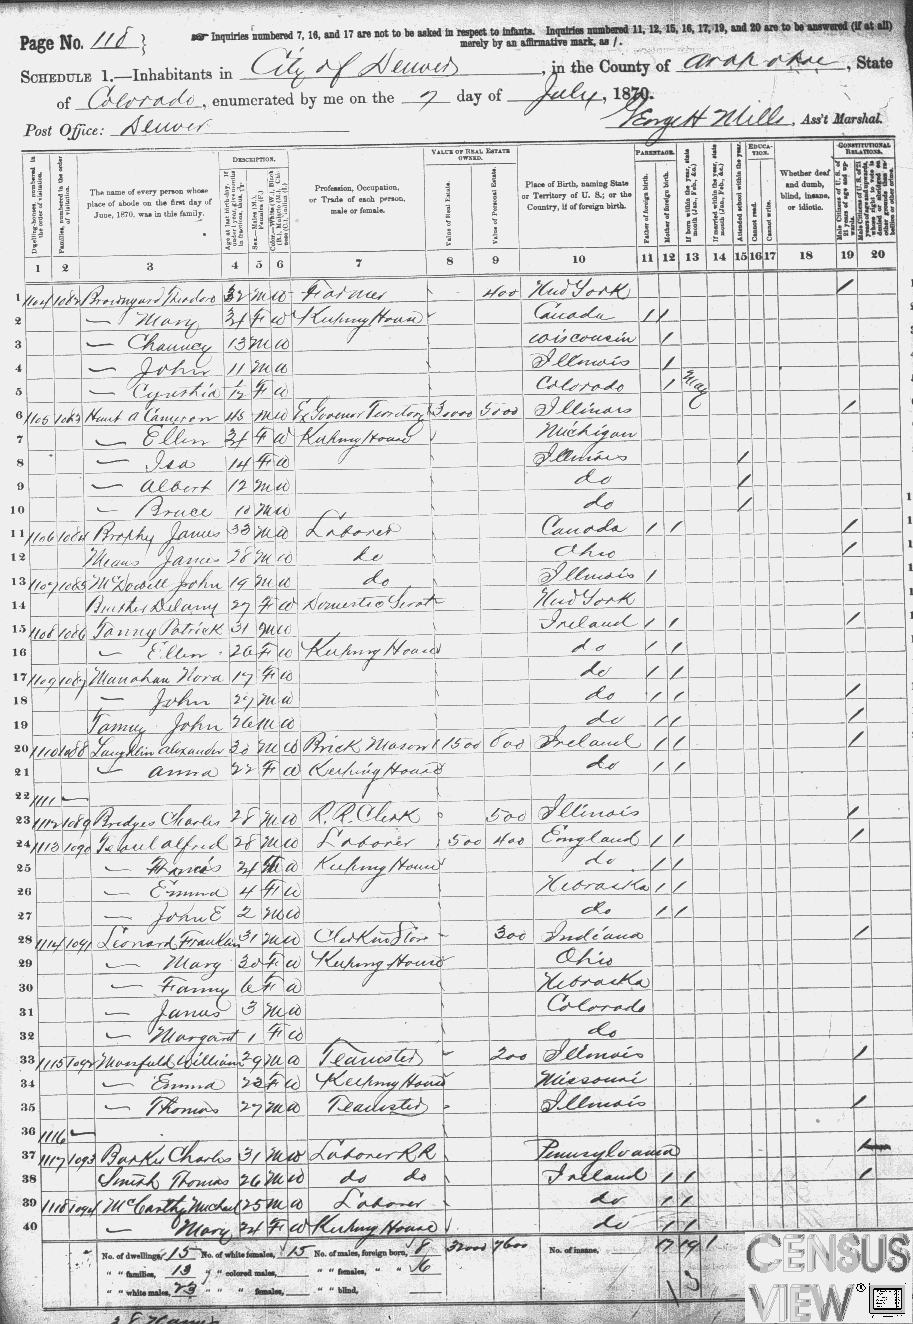 Page No. 118 } ☞ Inquiries numbered 7, 16, and 17 are not to be asked in respect to infants. Inquiries numbered 11, 12, 15, 16, 17, 19, and 20 are to be answered (if at all)
merely by an affirmative mark, as /.
SCHEDULE 1.—Inhabitants in City of Denver, in the County of Arapahoe, State
of Colorado, enumerated by me on the 7 day of July, 1870.
Post Office: Denver George H Mills, Ass't Marshal.
Dwelling-houses, numbered in the order of visitation.
Families, numbered in the order of visitation.
The name of every person whose place of abode on the first day of June, 1870, was in this family.
DESCRIPTION.
Profession, Occupation, or Trade of each person, male or female.
VALUE OF REAL ESTATE OWNED.
Value of Real Estate.
Value of Personal Estate.
Place of Birth, naming State or Territory of U. S.; or the Country, if of foreign birth.
PARENTAGE.
Father of foreign birth.
Mother of foreign birth.
If born within the year, state month (Jan., Feb., &c.)
If married within the year, state month (Jan., Feb., &c.)
EDUCATION.
Attended school within the year.
Cannot read.
Cannot write.
Whether deaf and dumb, blind, insane, or idiotic.
CONSTITUTIONAL RELATIONS.
1 2 3 4 5 6 7 8 9 10 11 12 13 14 15 16 17 18 19 20
1 1104 1082 Theodore 32 M W Farmer 400 New York /
2 — Mary 34 F W Keeping House Canada / /
3 — Chauncy 13 M W Wisconsin /
4 — John 11 M W Illinois /
5 — Cynthia F W Colorado / May
6 1105 1083 Hunt A Cameron 45 M W Ex Govenor Territory 30000 5000 Illinois /
7 — Ellen 34 F W Keeping House Michigan
8 — Isa 14 F W Illinois /
9 — Albert 12 M W do /
10 — Bruce 10 M W do /
11 1106 1084 Brophy James 33 M W Laborer Canada / / /
12 Means James 28 M W do Ohio /
13 1107 1085 McDowell John 19 M W do Illinois /
14 27 F W Domestic Servt New York
15 1108 1086 Fanny Patrick 31 M W Ireland / / /
16 — Ellen 26 F W Keeping House do / /
17 1109 1087 Manahan Nora 17 F W do / /
18 — John 27 M W do / / /
19 Fanny John 26 M W do / / /
20 1110 1088 Laughlin Alexander 30 M W Brick Mason 1500 600 Ireland / / /
21 — Anna 22 F W Keeping House do / /
22 1111 —
23 1112 1089 Bridges Charles 28 M W R. R. Clerk 500 Illinois /
24 1113 1090 Alfred 28 M W Laborer 500 400 England / / /
25 — Francis 24 W Keeping House do / /
26 — Emma 4 F W Nebraska / /
27 — John E 2 M W do / /
28 1114 1091 Leonard Franklin 31 M W Clerk in Store 300 Indiana /
29 — Mary 30 F W Keeping House Ohio
30 — Fanny 6 F W Nebraska
31 — James 3 M W Colorado
32 — Margaret 1 F W do
33 1115 1092 William 29 M W Teamster 200 Illinois /
34 — Emma 22 F W Keeping House Missouri
35 — Thomas 27 M W Teamster Illinois /
36 1116 —
37 1117 1093 Barker Charles 31 M W Laborer RR Pennsylvania
38 Smith Thomas 26 M W do do Ireland / / /
39 1118 1094 McCarthy Michael 25 M W Laborer do / /
40 — Mary 24 F W Keeping House do / /
No. of dwellings, 15 No. of white females, 15 No. of males, foreign born, 8 32000 7600 No. of insane, 17 19 1
" " families, 13 " " colored males, " " females, " " 6
" " white males, 23 " " " females, " " blind,
CENSUS
VIEW®